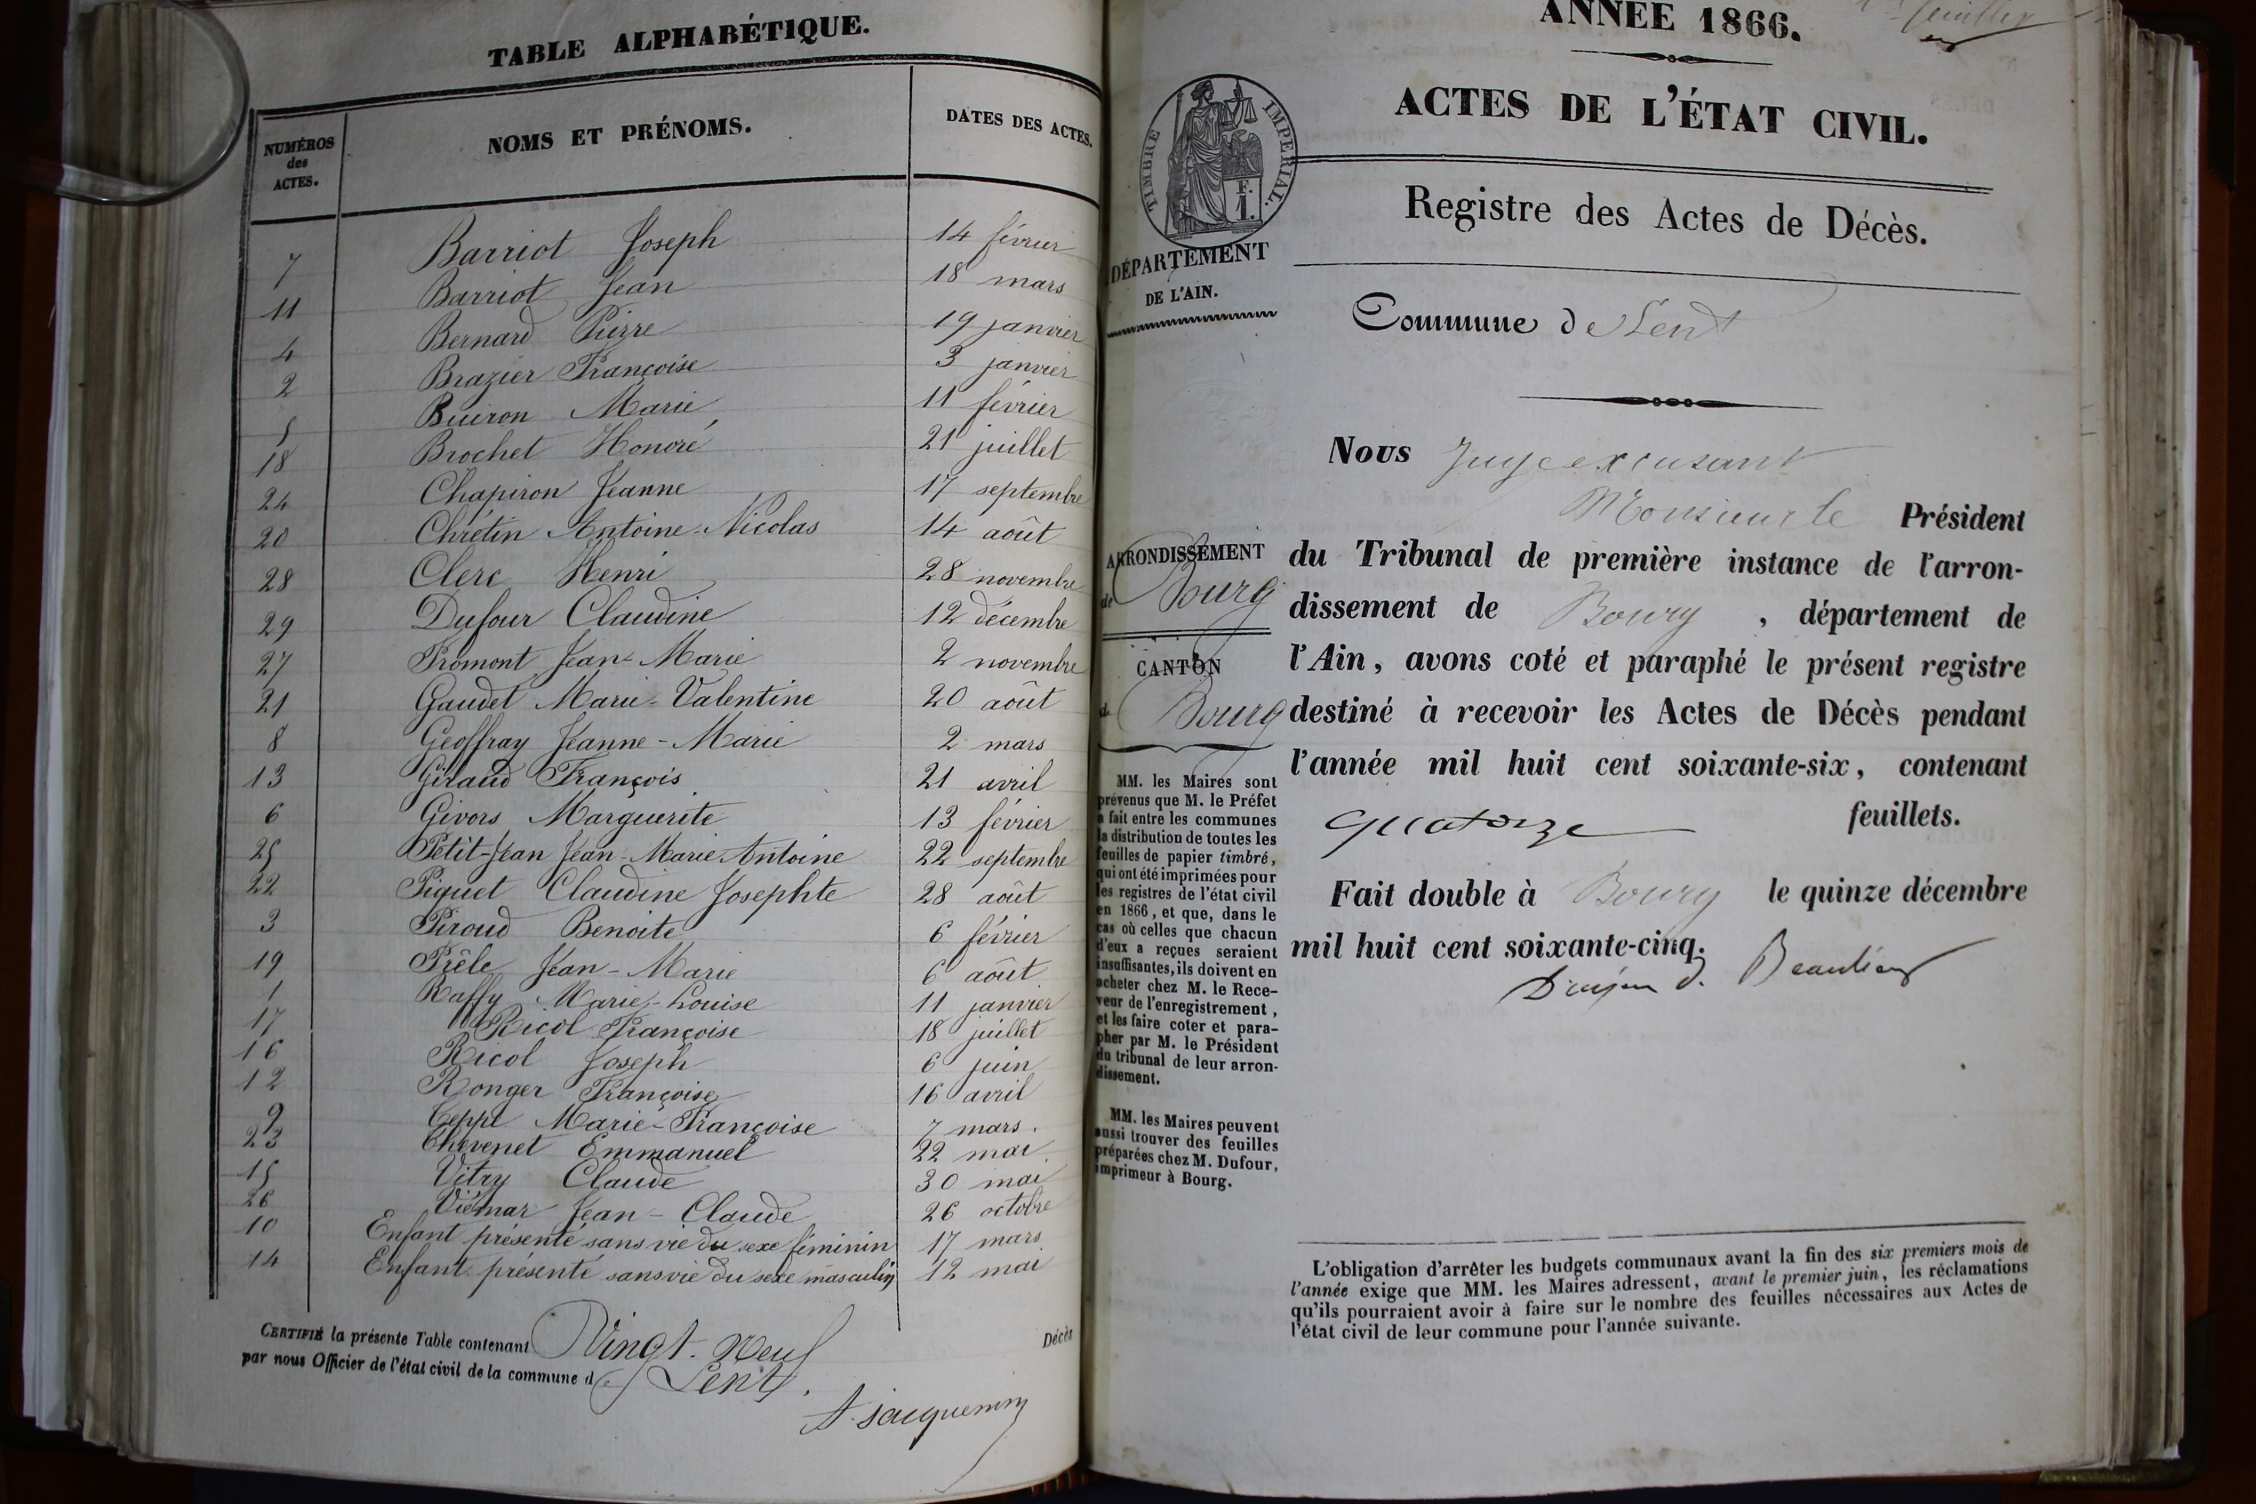 TABLE ALPHABÉTIQUE.
NUMÉROS des ACTES. NOMS ET PRÉNOMS. DATES DES ACTES.
7 Barriot Joseph 14 février
11 Barriot Jean 18 mars
4 Bernard Pierre 19 janvier
2 Brazier Françoise 3 janvier
5 Buiron Marie 11 février
18 Brochet Honoré 21 juillet
24 Chapiron Jeanne 17 septembre
20 Chrétin Antoine-Nicolas 14 août
28 Clerc Henri 28 novembre
29 Dufour Claudine 12 décembre
27 Fromont Jean-Marie 2 novembre
21 Gaudet Marie-Valentine 20 août
8 Geoffray Jeanne-Marie 2 mars
13 Giraud François 21 avril
6 Givors Marguerite 13 février
25 Petit-Jean Jean-Marie Antoine 22 septembre
22 Piquet Claudine Josephte 28 août
3 Piroud Benoite 6 février
19 Prêle Jean-Marie 6 août
1 Raffy Marie-Louise 11 janvier
17 Ricol Françoise 18 juillet
16 Ricol Joseph 6 juin
12 Ronger Françoise 16 avril
9 Ceppe Marie-Françoise 7 mars.
23 Chevenet Emmanuel 22 mai
15 Vitry Claude 30 mai
26 Viémar Jean-Claude 26 octobre
10 Enfant présenté sans vie du sexe féminin 17 mars
14 Enfant présenté sans vie du sexe masculin 12 mai
CERTIFIÉ la présente Table contenant Vingt-Neuf Décès
par nous Officier de l'état civil de la commune de Lent.
A. Jacquemin
feuillet
ANNÉE 1866.
ACTES DE L'ÉTAT CIVIL.
TIMBRE IMPERIAL.
F. I.
DÉPARTEMENT
DE L'AIN.
Registre des Actes de Décès.
Commune de Lent
ARRONDISSEMENT
de Bourg
CANTON
de Bourg
MM. les Maires sont
prévenus que M. le Préfet
a fait entre les communes
la distribution de toutes les
feuilles de papier timbré,
qui ont été imprimées pour
les registres de l'état civil
en 1866, et que, dans le
cas où celles que chacun
d'eux a reçues seraient
insuffisantes, ils doivent en
acheter chez M. le Rece-
veur de l'enregistrement,
et les faire coter et para-
pher par M. le Président
du tribunal de leur arron-
dissement.
MM. les Maires peuvent
aussi trouver des feuilles
préparées chez M. Dufour,
imprimeur à Bourg.
Nous Juge excusant
Monsieur le Président
du Tribunal de première instance de l'arron-
dissement de Bourg, département de
l'Ain, avons coté et paraphé le présent registre
destiné à recevoir les Actes de Décès pendant
l'année mil huit cent soixante-six, contenant
quatorze feuillets.
Fait double à Bourg le quinze décembre
mil huit cent soixante-cinq.
Beaulieu
L'obligation d'arrêter les budgets communaux avant la fin des six premiers mois de
l'année exige que MM. les Maires adressent, avant le premier juin, les réclamations
qu'ils pourraient avoir à faire sur le nombre des feuilles nécessaires aux Actes de
l'état civil de leur commune pour l'année suivante.